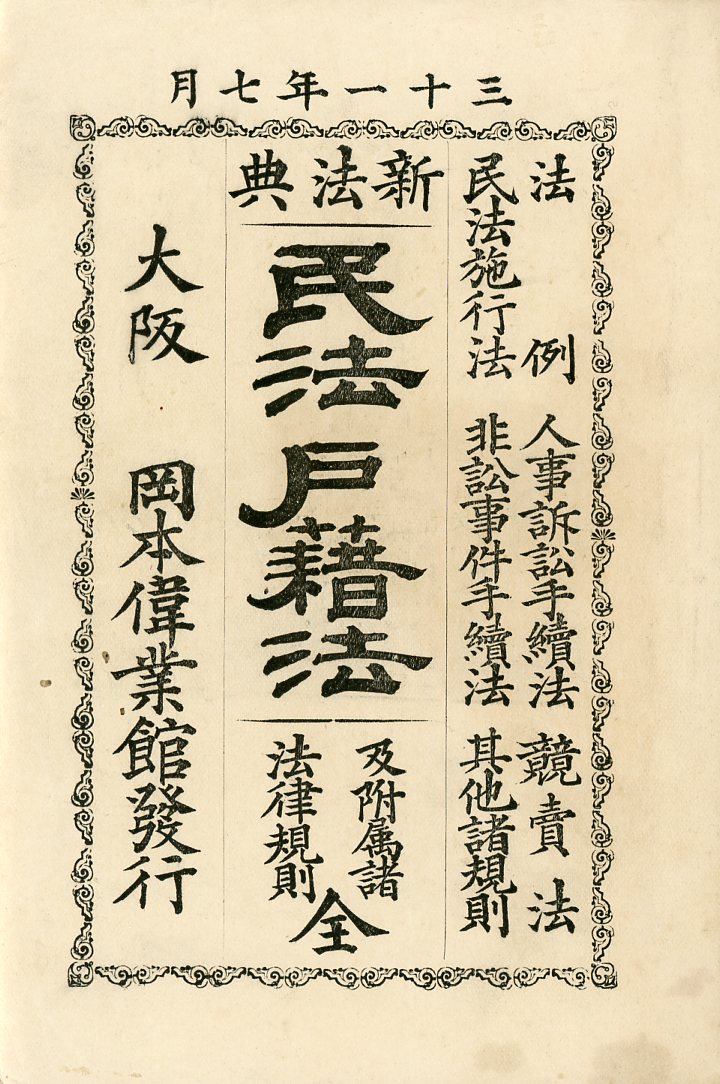 三十一年七月
法例 人事訴訟手續法 競賣法
民法施行法 非訟事件手續法 其他諸規則
新法典
民法戸籍法
及附属諸
法律規則
全
大阪 岡本偉業館發行